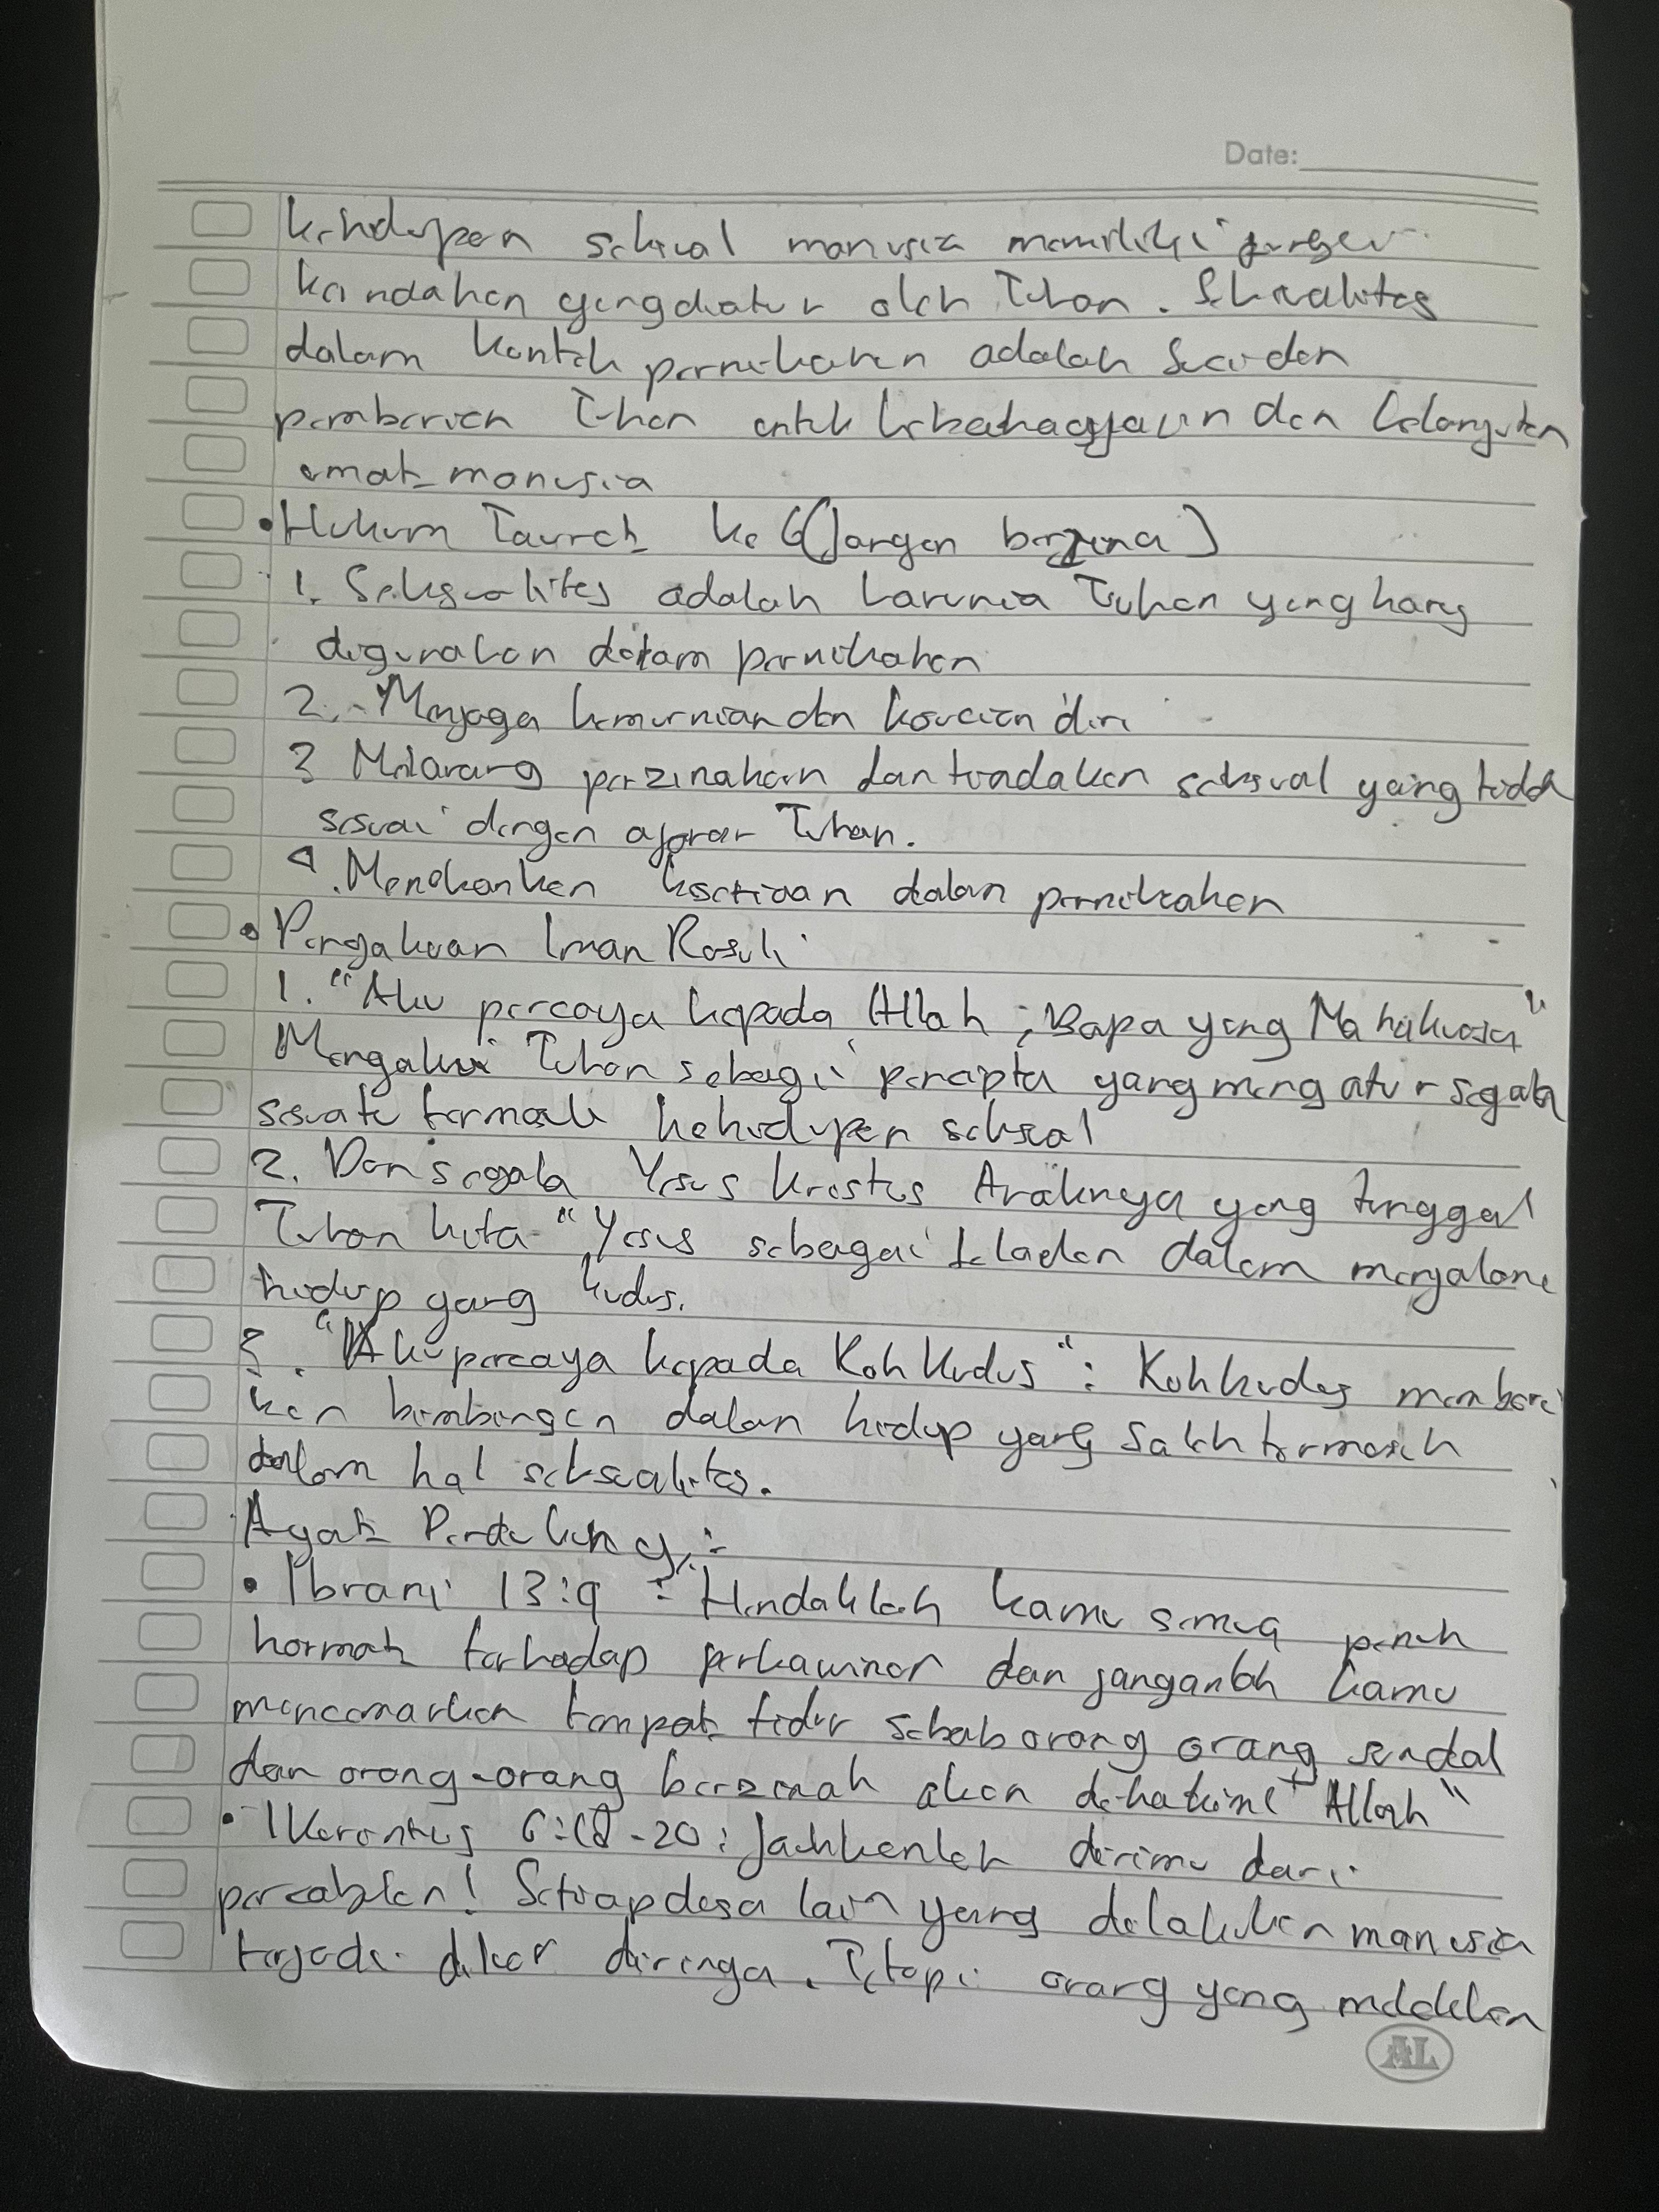 Date:
kehidupan seksual manusia memiliki
keindahan yang diatur oleh Tuhan. Seksualitas
dalam konteks pernikahan adalah suci dan
pemberian Tuhan untuk kebahagyaan dan kelanjutan
umat manusia
• Hukum Taurat ke 6 (Jangan berzina)
1. Seksualitas adalah karunia Tuhan yang harus
digunakan dalam pernikahan
2. Menjaga kemurnian dan kesucian diri
3 Melarang perzinahan dan tindakan seksual yang tidak
sesuai dengan ajaran Tuhan.
4. Menekankan kesetiaan dalam pernikahan
• Pengakuan Iman Rasuli
1. "Aku percaya kepada Allah, Bapa yang Mahakuasa"
Mengakui Tuhan sebagi pencipta yang mengatur segala
sesuatu termasuk kehidupan seksual
2. Dan segala Yesus Kristus Anaknya yang tunggal
Tuhan kita" Yesus sebagai teladan dalam menjalani
hidup yang kudus.
3. "Aku percaya kepada Roh Kudus": Roh kudus memberi
kan bimbingan dalam hidup yang saleh termasuk
dalam hal seksualitas.
Ayat Pendukung :
• Ibrani 13:4 : Hendaklah kamu semua penuh
hormat terhadap perkawinan dan janganlah kamu
mencemarkan tempat tidur sebab orang orang sundal
dan orang-orang berzinah akan dihakimi Allah"
• 1 Korintus 6:18-20: Jauhkanlah dirimu dari
percabulan! Setiap dosa lain yang dilakukan manusia
terjadi diluar dirinya. Tetapi orang yang melakukan
AL